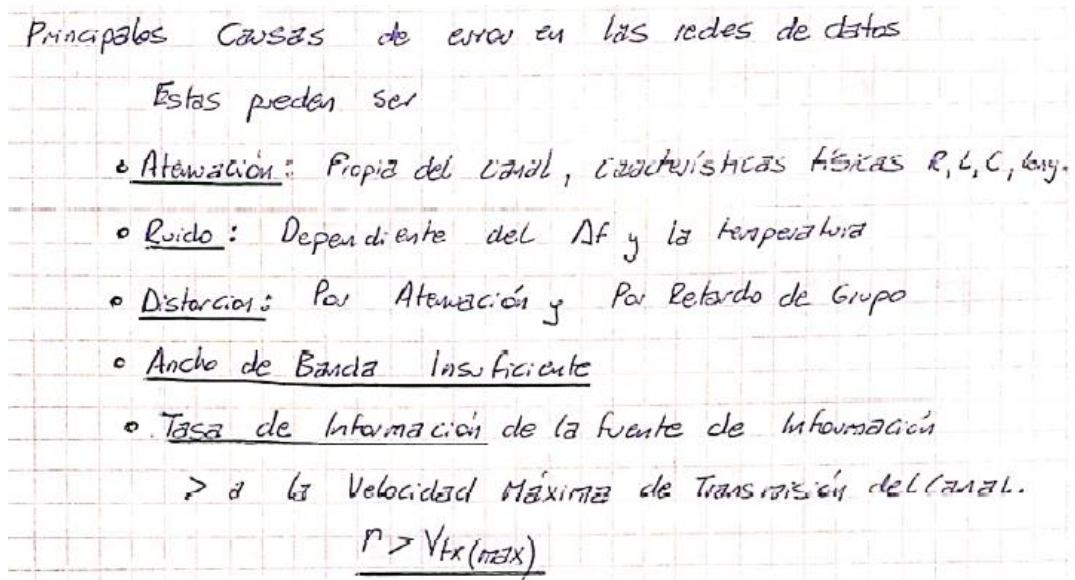 Principales Causas de error en las redes de datos
Estas pueden ser
• Atenuación: Propia del canal, características físicas R, L, C, long.
• Ruido: Dependiente del Δf y la temperatura
• Distorcion: Por Atenuación y Por Retardo de Grupo
• Ancho de Banda Insuficiente
• Tasa de Información de la fuente de Información
> a la Velocidad Máxima de Transmisión del Canal.
r > Vtx(max)